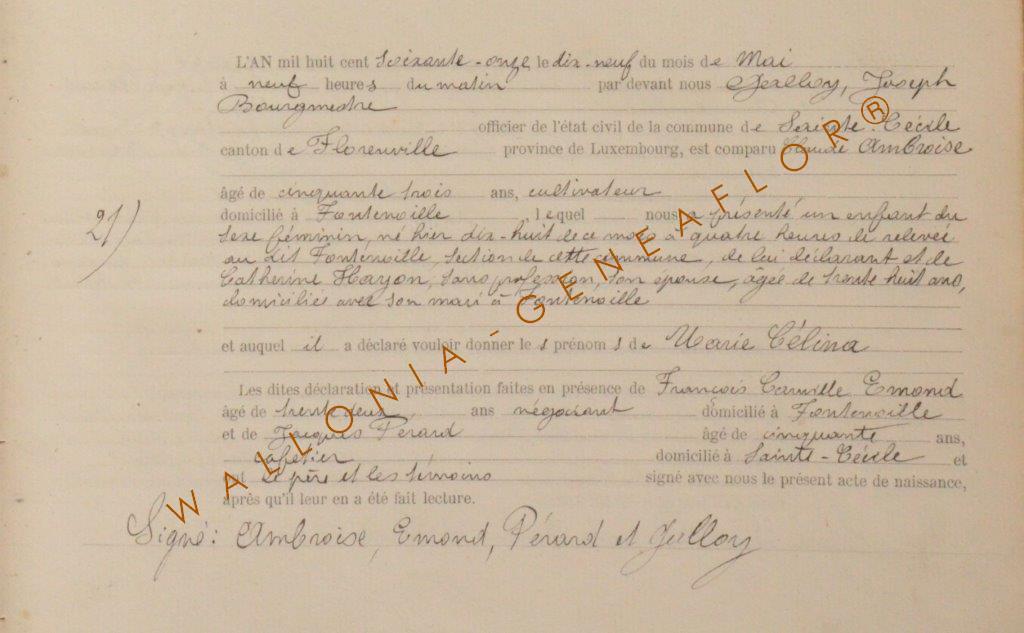 L'AN mil huit cent soixante-onze le dix-neuf du mois de Mai
à neuf heures du matin par devant nous Joseph
Bourgmestre
officier de l'état civil de la commune de Sainte-Cécile
canton de Florenville province de Luxembourg, est comparu Claude Ambroise
âgé de cinquante trois ans, cultivateur
domicilié à Fontenoille, lequel nous a présenté un enfant du
21)
sexe féminin, né hier dix-huit de ce mois à quatre heures de relevée
au dit Fontenoille, section de cette commune, de lui déclarant et de
Catherine Hayon, sans profession, son épouse, âgée de trente huit ans,
domiciliée avec son mari à Fontenoille
et auquel il a déclaré vouloir donner les prénoms de Marie Célina
Les dites déclaration et présentation faites en présence de François Camille Emond
âgé de trente deux ans négociant domicilié à Fontenoille
et de Jacques Pérard âgé de cinquante ans,
cafetier domicilié à Sainte-Cécile et
le père et les témoins signé avec nous le présent acte de naissance,
après qu'il leur en a été fait lecture.
Signé: Ambroise, Emond, Pérard et
WALLONIA-GENEAFLOR®